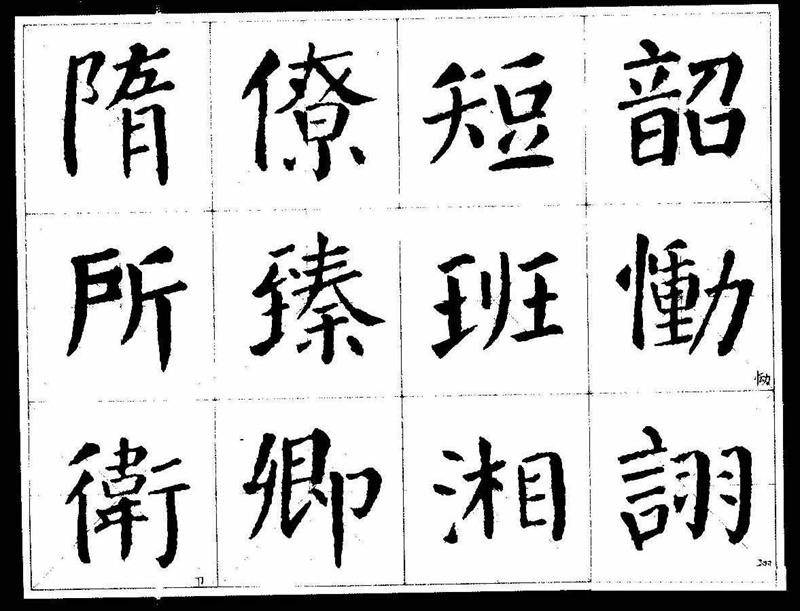 隋 僚 短 韶
所 臻 班 慟
恸
衛 卿 湘 詡